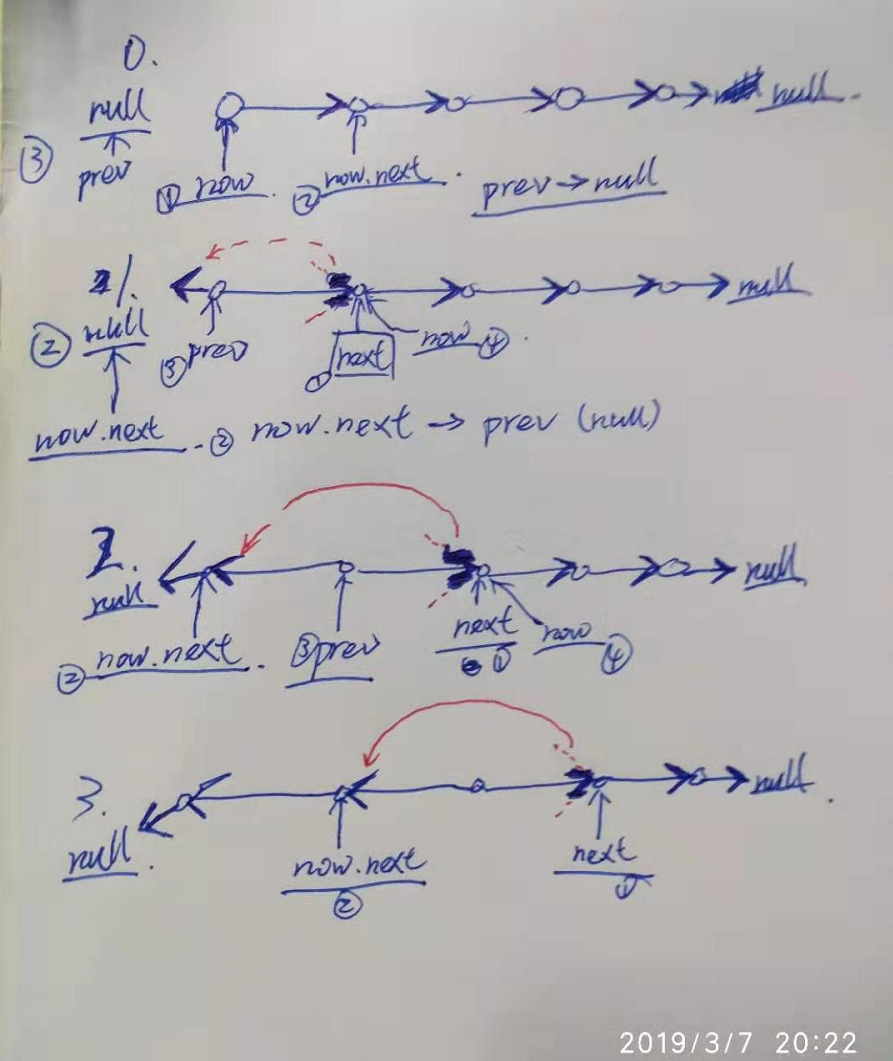 0.
null null.
③ prev ① now. ② now.next. prev→null
1.
② null ③ prev ① next now ④. null
now.next. ② now.next → prev (null)
2.
null null
② now.next. ③ prev next ① now ④
3.
null. null.
now.next next
② ①
2019/3/7 20:22